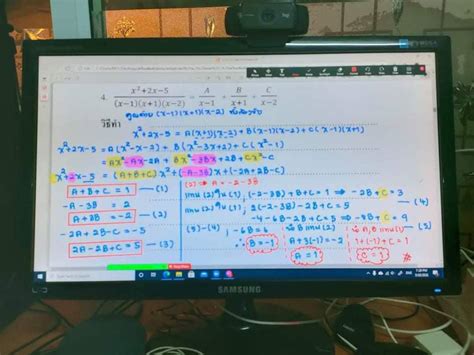 4. x²+2x-5 / (x-1)(x+1)(x-2) = A/(x-1) + B/(x+1) + C/(x-2)
คูณด้วย (x-1)(x+1)(x-2) ทั้งสองข้าง
วิธีทำ x²+2x-5 = A(x+1)(x-2) + B(x-1)(x-2) + C(x-1)(x+1)
x²+2x-5 = A(x²-x-2) + B(x²-3x+2) + C(x²-1)
= Ax²-Ax-2A + Bx²-3Bx+2B+Cx²-C
x²+2x-5 = (A+B+C)x²+(-A-3B)x+(-2A+2B-C)
A+B+C = 1 (1)
-A-3B = 2
A+3B = -2 (2)
-2A+2B-C = -5
2A-2B+C = 5 (3)
(2) ⇒ A = -2-3B
แทน (2) ใน (1); (-2-3B)+B+C = 1 ⇒ -2B+C = 3
แทน (2) ใน (3); 2(-2-3B)-2B+C = 5
-4-6B-2B+C = 5 ⇒ -8B+C = 9 (5)
(5)-(4); -6B = 6
∴ B = -1
A+3(-1) = -2
A = 1
1+(-1)+C = 1
C = 1
SAMSUNG